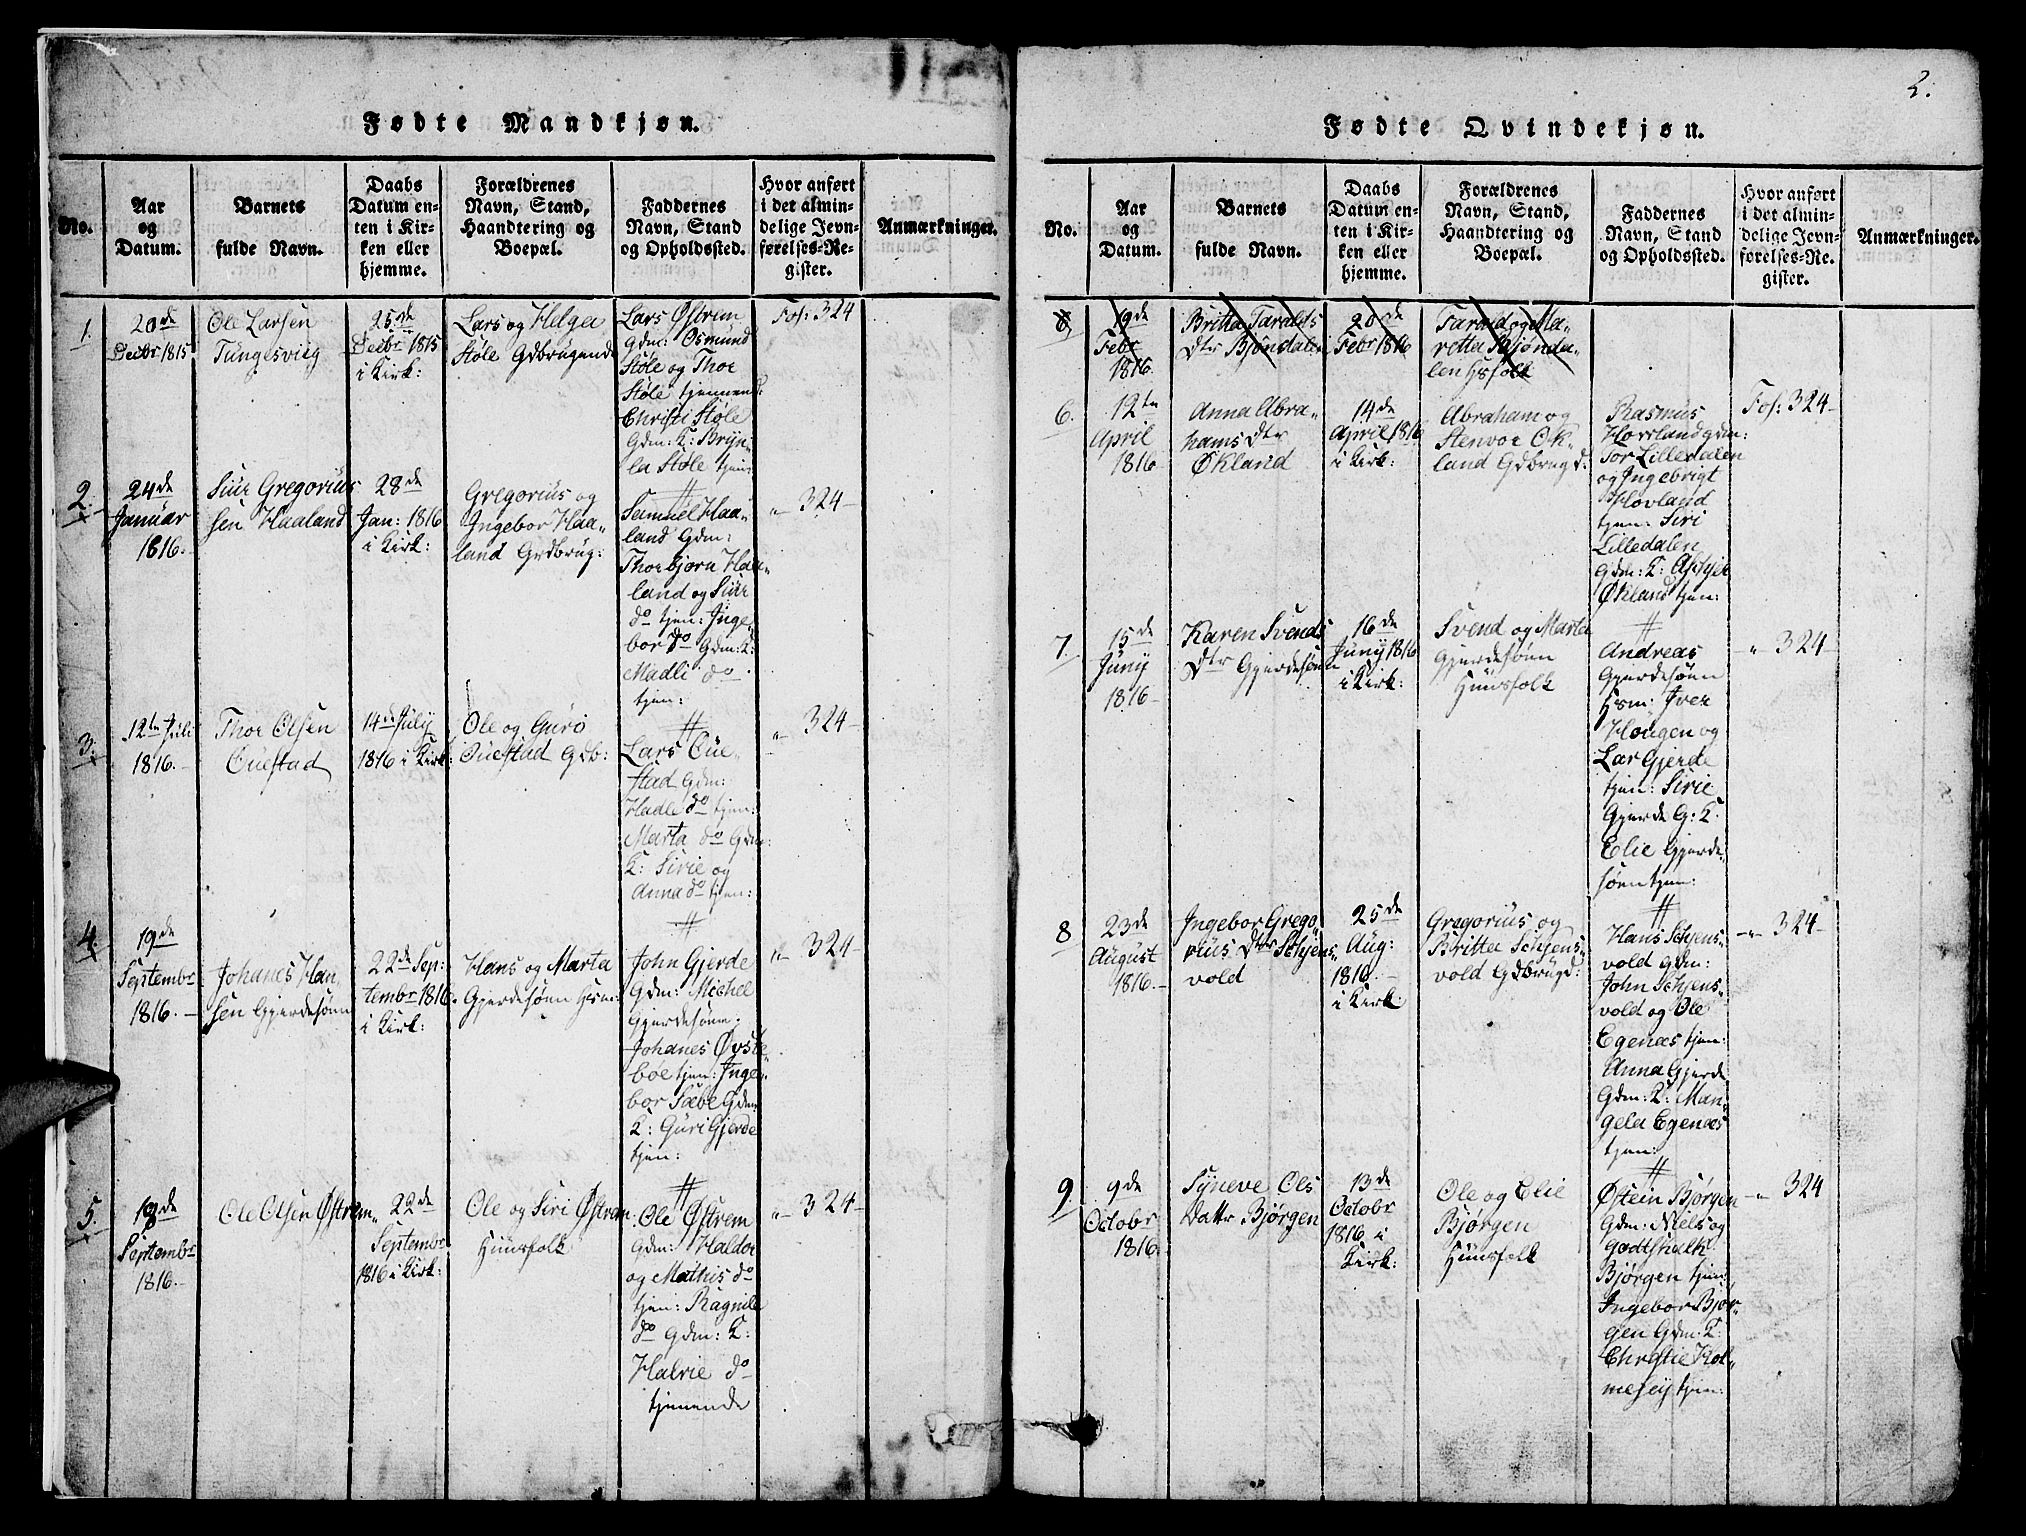 2.
Fødte Mandkjøn.
No.
Aar
og
Datum.
Barnets
fulde Navn.
Daabs
Datum en-
ten i Kir-
ken eller
hjemme.
Forældrenes
Navn, Stand,
Haandtering og
Boepæl.
Faddernes
Navn, Stand
og Opholdssted.
Hvor anført
i det almin-
delige Jevn-
førelses-Re-
gister.
Anmærkninger.
1.
20de
Decbr 1815
Ole Larsen
Tungesviig
25de
Decbr 1815
i Kirk:
Lars og Helga
Støle Gdbrugende
Lars Østrem
Gdm: Osmund
Støle og Thor
Støle tjennend:
Christi Støle
Gdm: K: Bryn-
la Støle tjen:
Fol: 324
2.
24de
Januar
1816.
Siur Gregorius
sen Haaland
28de
Jan: 1816
i Kirk:
Gregorius og
Ingebor Haa-
land Grdbrug:
Samuel Haa-
land Gdm:
Thorbjørn Haa-
land og Siur
do tjen: Inge-
bor do Gdm: K:
Madli do
tjen:
" 324
3.
12te Juli
1816.
Thor Olsen
Ouestad
14de July
1816 i Kirk:
Ole og Guro
Ouestad Gdb:
Lars Oue-
stad Gdm:
Hadle do tjen:
Marta do Gdm
K: Sirie og
Anna do tjen:
" 324
4.
19de
Septembr
1816.
Johanes Han-
sen Gjerdesøen
22de Sep:
tembr 1816
i Kirk:
Hans og Marta
Gjerdesøen Hsm:
John Gjerde
Gdm: Michel
Gjerdesøen:
Johanes Øvste-
bøe tjen: Inge-
bor Sæbe Gdm
K: Guri Gjerde
tjen:
" 324
5.
18de
Septembr
1816.
Ole Olsen Østrem
22de
Septembr
1816 i Kirk:
Ole og Siri Østrem
Huusfolk
Ole Østrem
Gdm: Haldor
og Mathis do
tjen: Ragnile
do Gdm: K:
Halvie do
tjenende
" 324
Fødte Qvindekjøn.
No.
Aar
og
Datum.
Barnets
fulde Navn.
Daabs
Datum en-
ten i Kir-
ken eller
hjemme.
Forældrenes
Navn, Stand,
Haandtering og
Boepæl.
Faddernes
Navn, Stand
og Opholdssted.
Hvor anført
i det almin-
delige Jevn-
førelses-Re-
gister.
Anmærkninger.
6
19de
Febr
1816.
Britta Taralds
Dtr Bjøndalen
20de
Febr 1816
Tarald og Ma-
retta Bjønda-
len Hsfolk
6.
12te
April
1816
Anna Abra-
hams Dtr
Økland
14de
April 1816
i Kirk:
Abraham og
Stenvor Øk-
land Gdbrugd:
Rasmus
Hovland gdm:
Tor Lilledalen
og Ingebrigt
Hovland
tjen: Siri
Lilledalen
Gdm: K: Asbjer
Økland tjen:
Fol: 324
7.
15de
Juny
1816.
Karen Svends
Dtr Gjerdesøen
16de
Juny 1816
i Kirk:
Svend og Marta
Gjerdesøen
Huusfolk
Andreas
Gjerdesøen
Hsm: Iver
Hougen og
Lar Gjerde
tjen: Sirie
Gjerde G: K:
Elie Gjerde-
søen tjen:
" 324
8
23de
August
1816.
Ingebor Grego-
rius Dtr Schjens-
vold
25de
Aug:
1816.
i Kirk:
Gregorius og
Britta Schjens-
vold Gdbrugd:
Hans Schjens-
vold gdm:
John Schjens-
vold og Ole
Egenæs tjen:
Anna Gjerde
Gdm: K: Man-
gela Egenæs
tjen:
" 324
9
9de
Octobr
1816.
Syneve Ols
Dattr Bjørgen
13de
Octobr
1816 i
Kirk:
Ole og Elie
Bjørgen
Huusfolk
Østein Bjørgen
Gdm: Niels og
Godtshalk
Bjørgen tjen:
Ingebor Bjør-
gen Gdm: K:
Christie Hol-
mesey tjen:
" 324